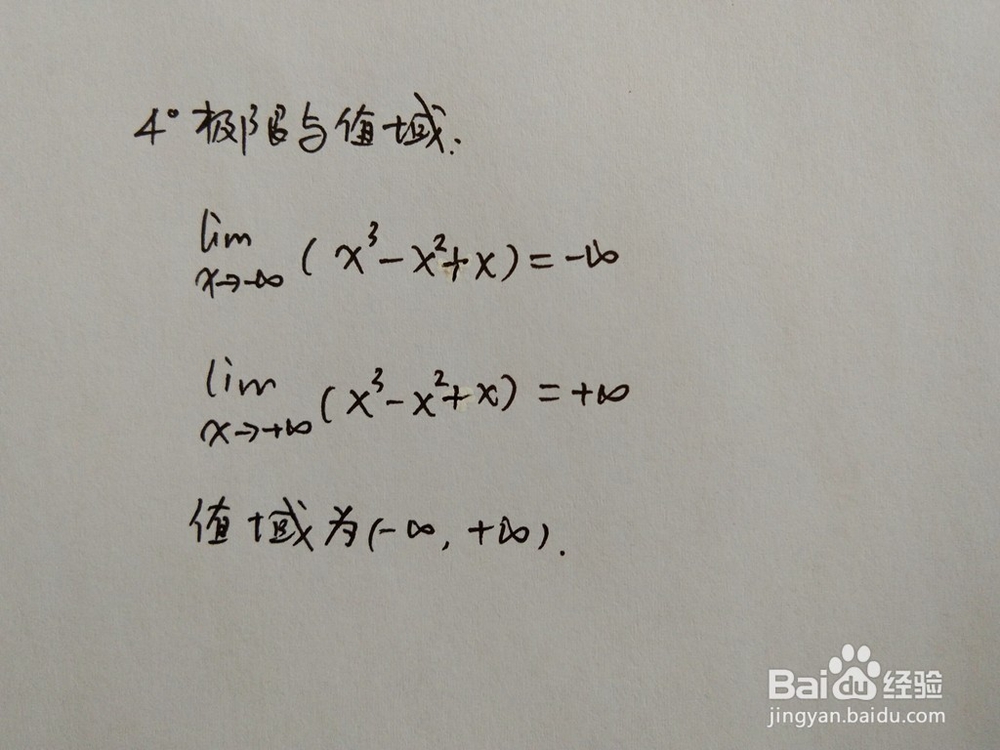 4° 极限与值域.
lim x→-∞ (x³-x²+x)=-∞
lim x→+∞ (x³-x²+x)=+∞
值域为(-∞,+∞).
Baidu经验
jingyan.baidu.com